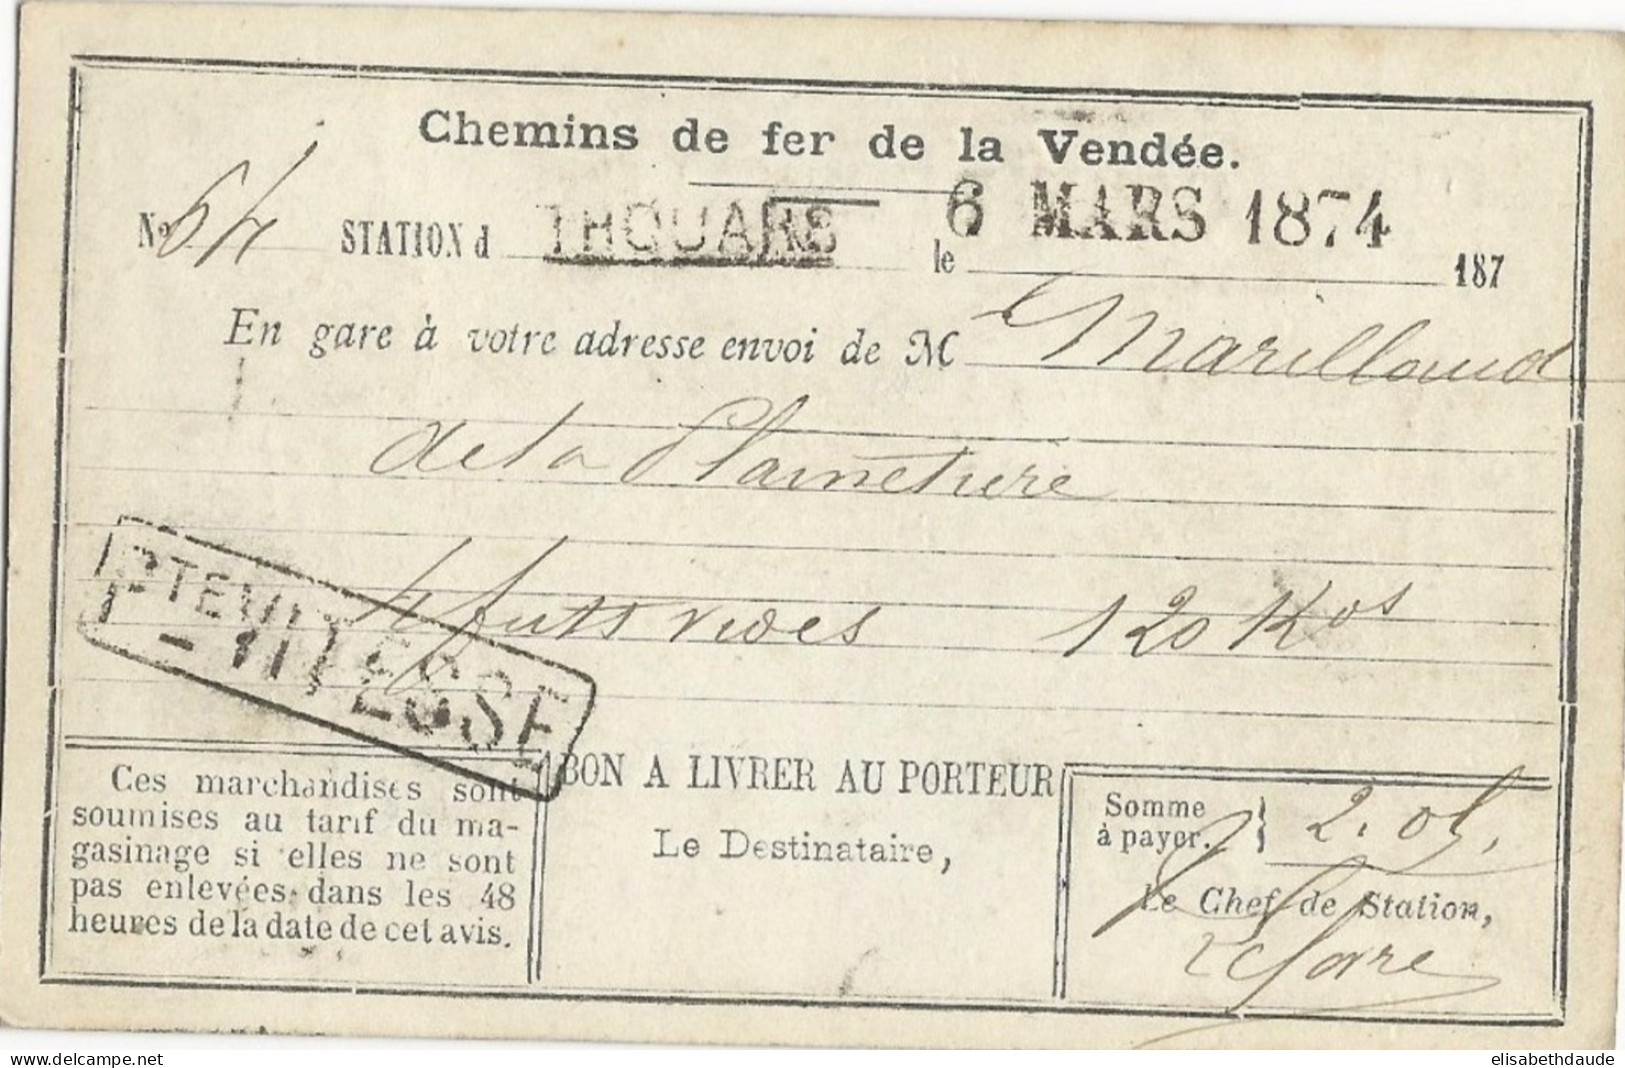 Chemins de fer de la Vendée.
No 64 STATION d THOUARS le 6 MARS 1874 187
En gare à votre adresse envoi de M Marillaud
de la Plainetière
4 futs vides 120 Kos
PTE VITESSE
VITESSE
Ces marchandises sont
soumises au tarif du ma-
gasinage si elles ne sont
pas enlevées dans les 48
heures de la date de cet avis.
BON A LIVRER AU PORTEUR
Le Destinataire,
Somme
à payer. } 2.05.
Le Chef de Station,
delcampe.net
elisabethdaude